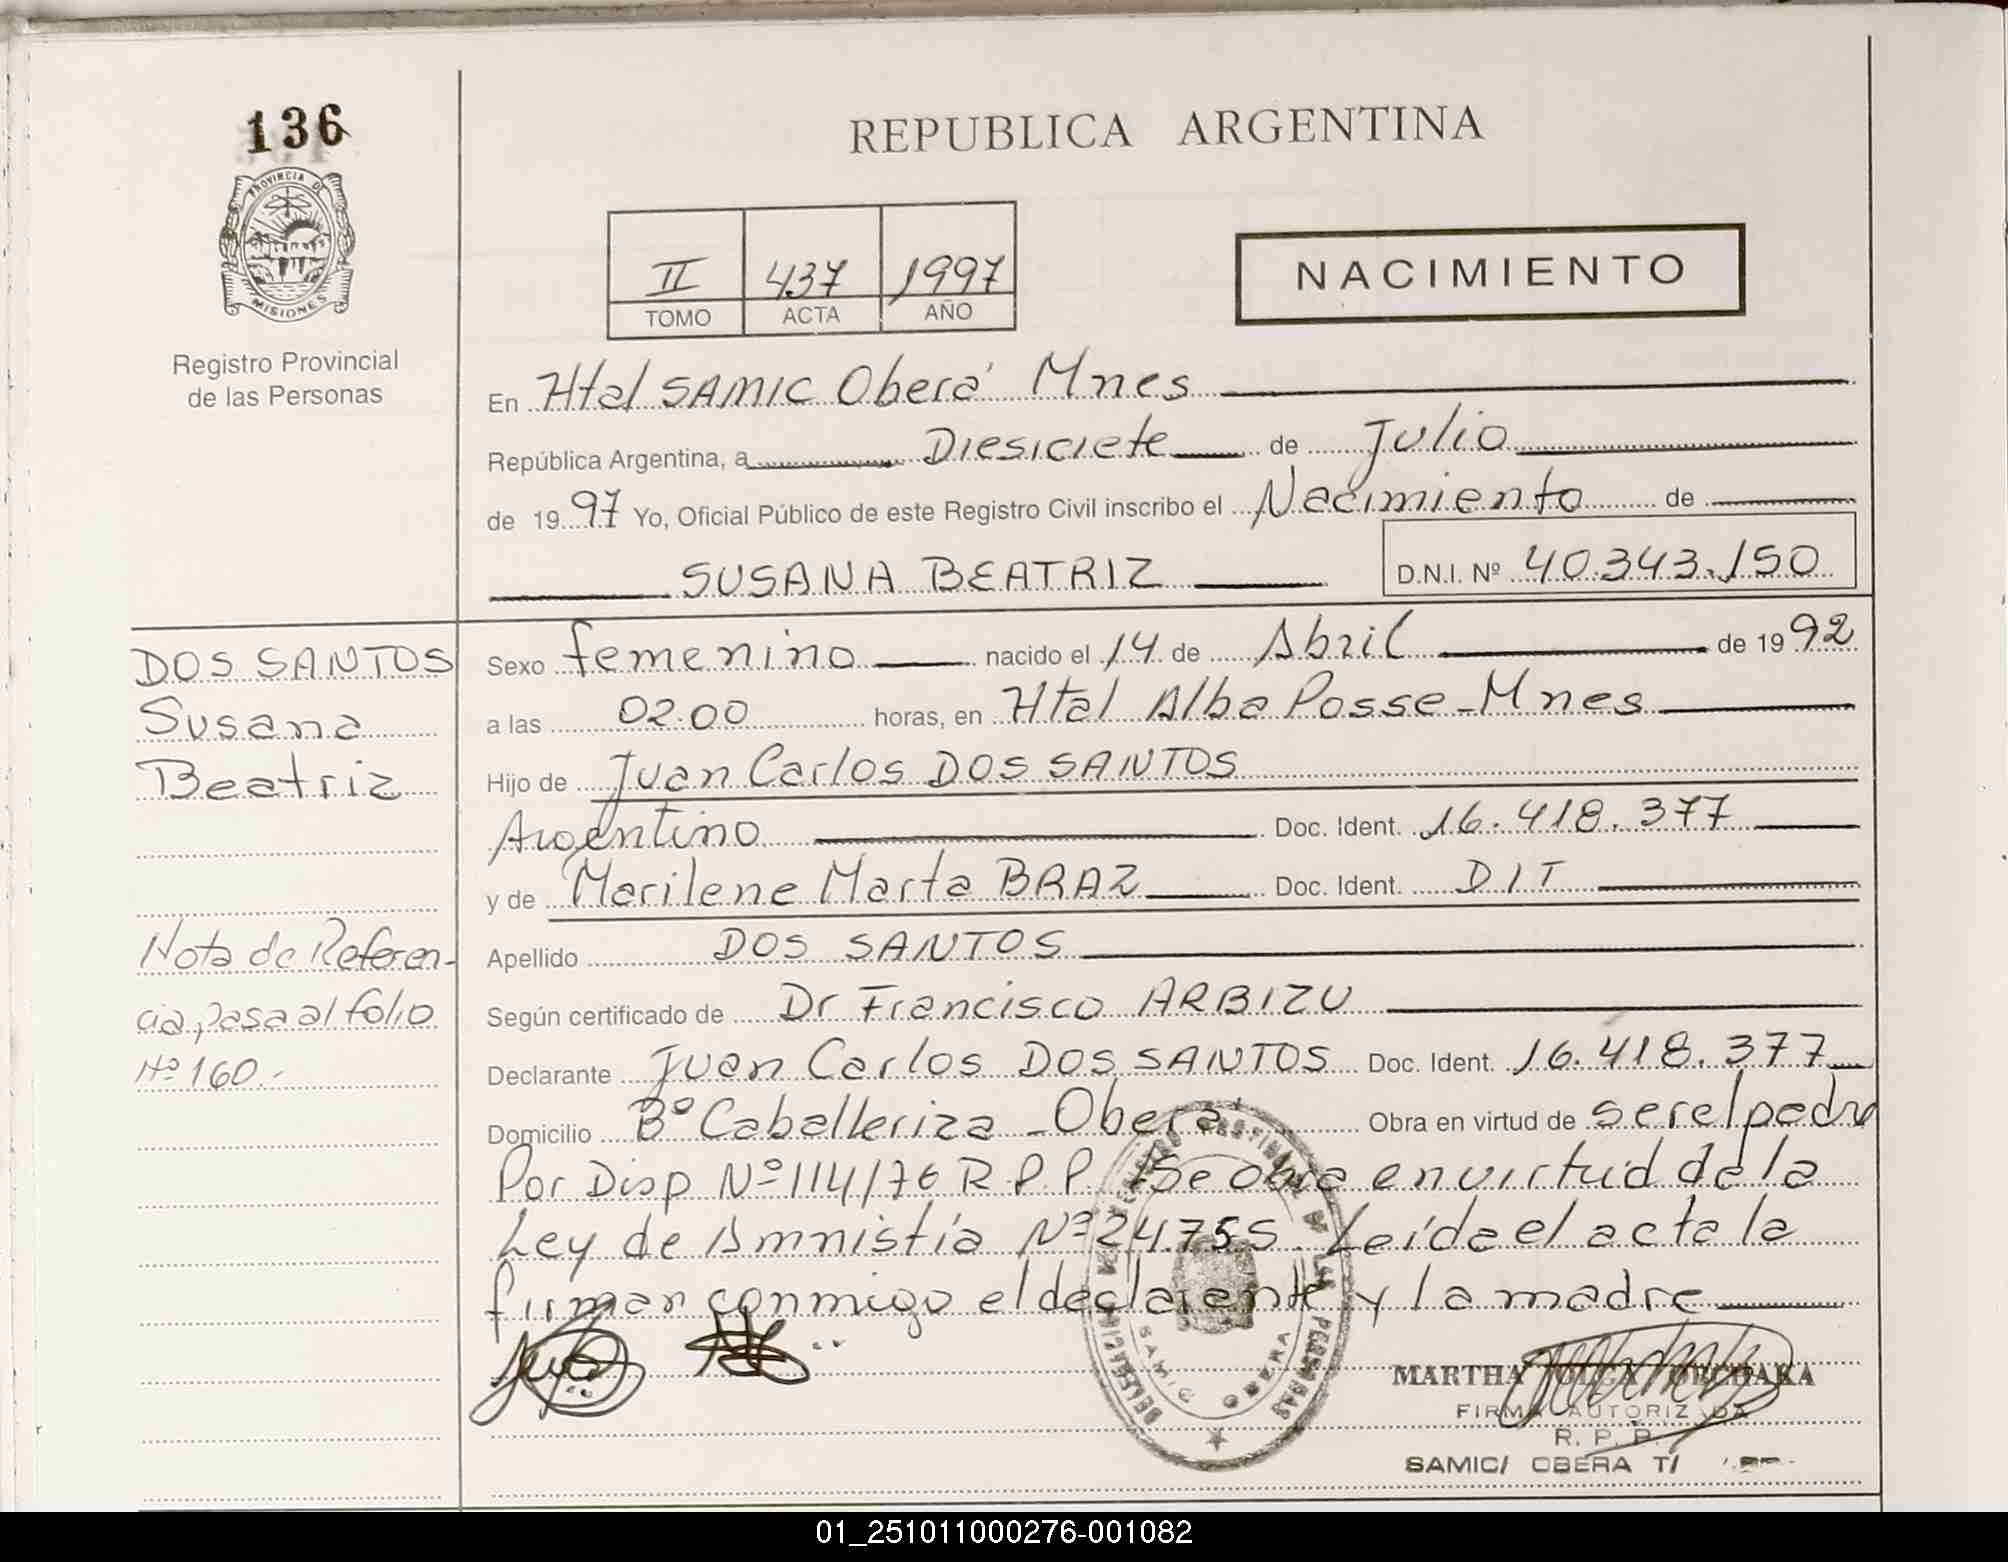 136
PROVINCIA DE
MISIONES
Registro Provincial
de las Personas
REPUBLICA ARGENTINA
II 437 1997
TOMO ACTA AÑO
NACIMIENTO
En Htal SAMIC Oberá Mnes
República Argentina, a Diesiciete de Julio
de 1997 Yo, Oficial Público de este Registro Civil inscribo el Nacimiento de
SUSANA BEATRIZ D.N.I. Nº 40.343.150
DOS SANTOS
Susana
Beatriz
Nota de Referen-
cia, pasa al folio
Nº 160.-
Sexo femenino nacido el 14 de Abril de 1992
a las 02.00 horas, en Htal Alba Posse - Mnes
Hijo de Juan Carlos DOS SANTOS
Argentino Doc. Ident. 16.418.377
y de Marilene Marta BRAZ Doc. Ident. DIT
Apellido DOS SANTOS
Según certificado de Dr Francisco ARBIZU
Declarante Juan Carlos DOS SANTOS Doc. Ident. 16.418.377
Domicilio Bº Caballeriza - Oberá Obra en virtud de ser el padre
Por Disp Nº 114/76 R.P.P. Se obra en virtud de la
Ley de Amnistía Nº 24.755. Leída el acta la
firman conmigo el declarante y la madre
DELEGACION REGISTRO PROVINCIAL DE LAS PERSONAS
SAMIC OBERA
MARTHA OLGA
FIRMA AUTORIZADA
R. P. P.
SAMIC/ OBERA
01_251011000276-001082